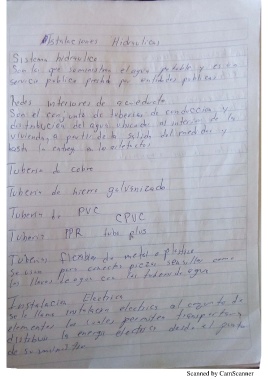 Instalaciones Hidraulicas
Sistema hidraulico
Son los que suministran el agua potable y es un
servicio publico prestado por entidades publicas
Redes interiores de acueducto
Son el conjunto de tuberias de conduccion y
distribucion del agua ubicado al interior de la
vivienda, a partir de la salida del medidor y
hasta la entrega a los artefactos
Tuberia de cobre
Tuberia de hierro galvanizado
Tuberia de PVC
CPVC
Tuberia PPR tubo plus
Tuberias flexibles de metal o plastico
Se usan para conectar piezas sencillas como
las llaves de agua con las tuberias de agua
Instalacion Electrica
Se le llama instalacion electrica al conjunto de
elementos los cuales permiten transportar y
distribuir la energia electrica desde el punto
de suministro
Scanned by CamScanner